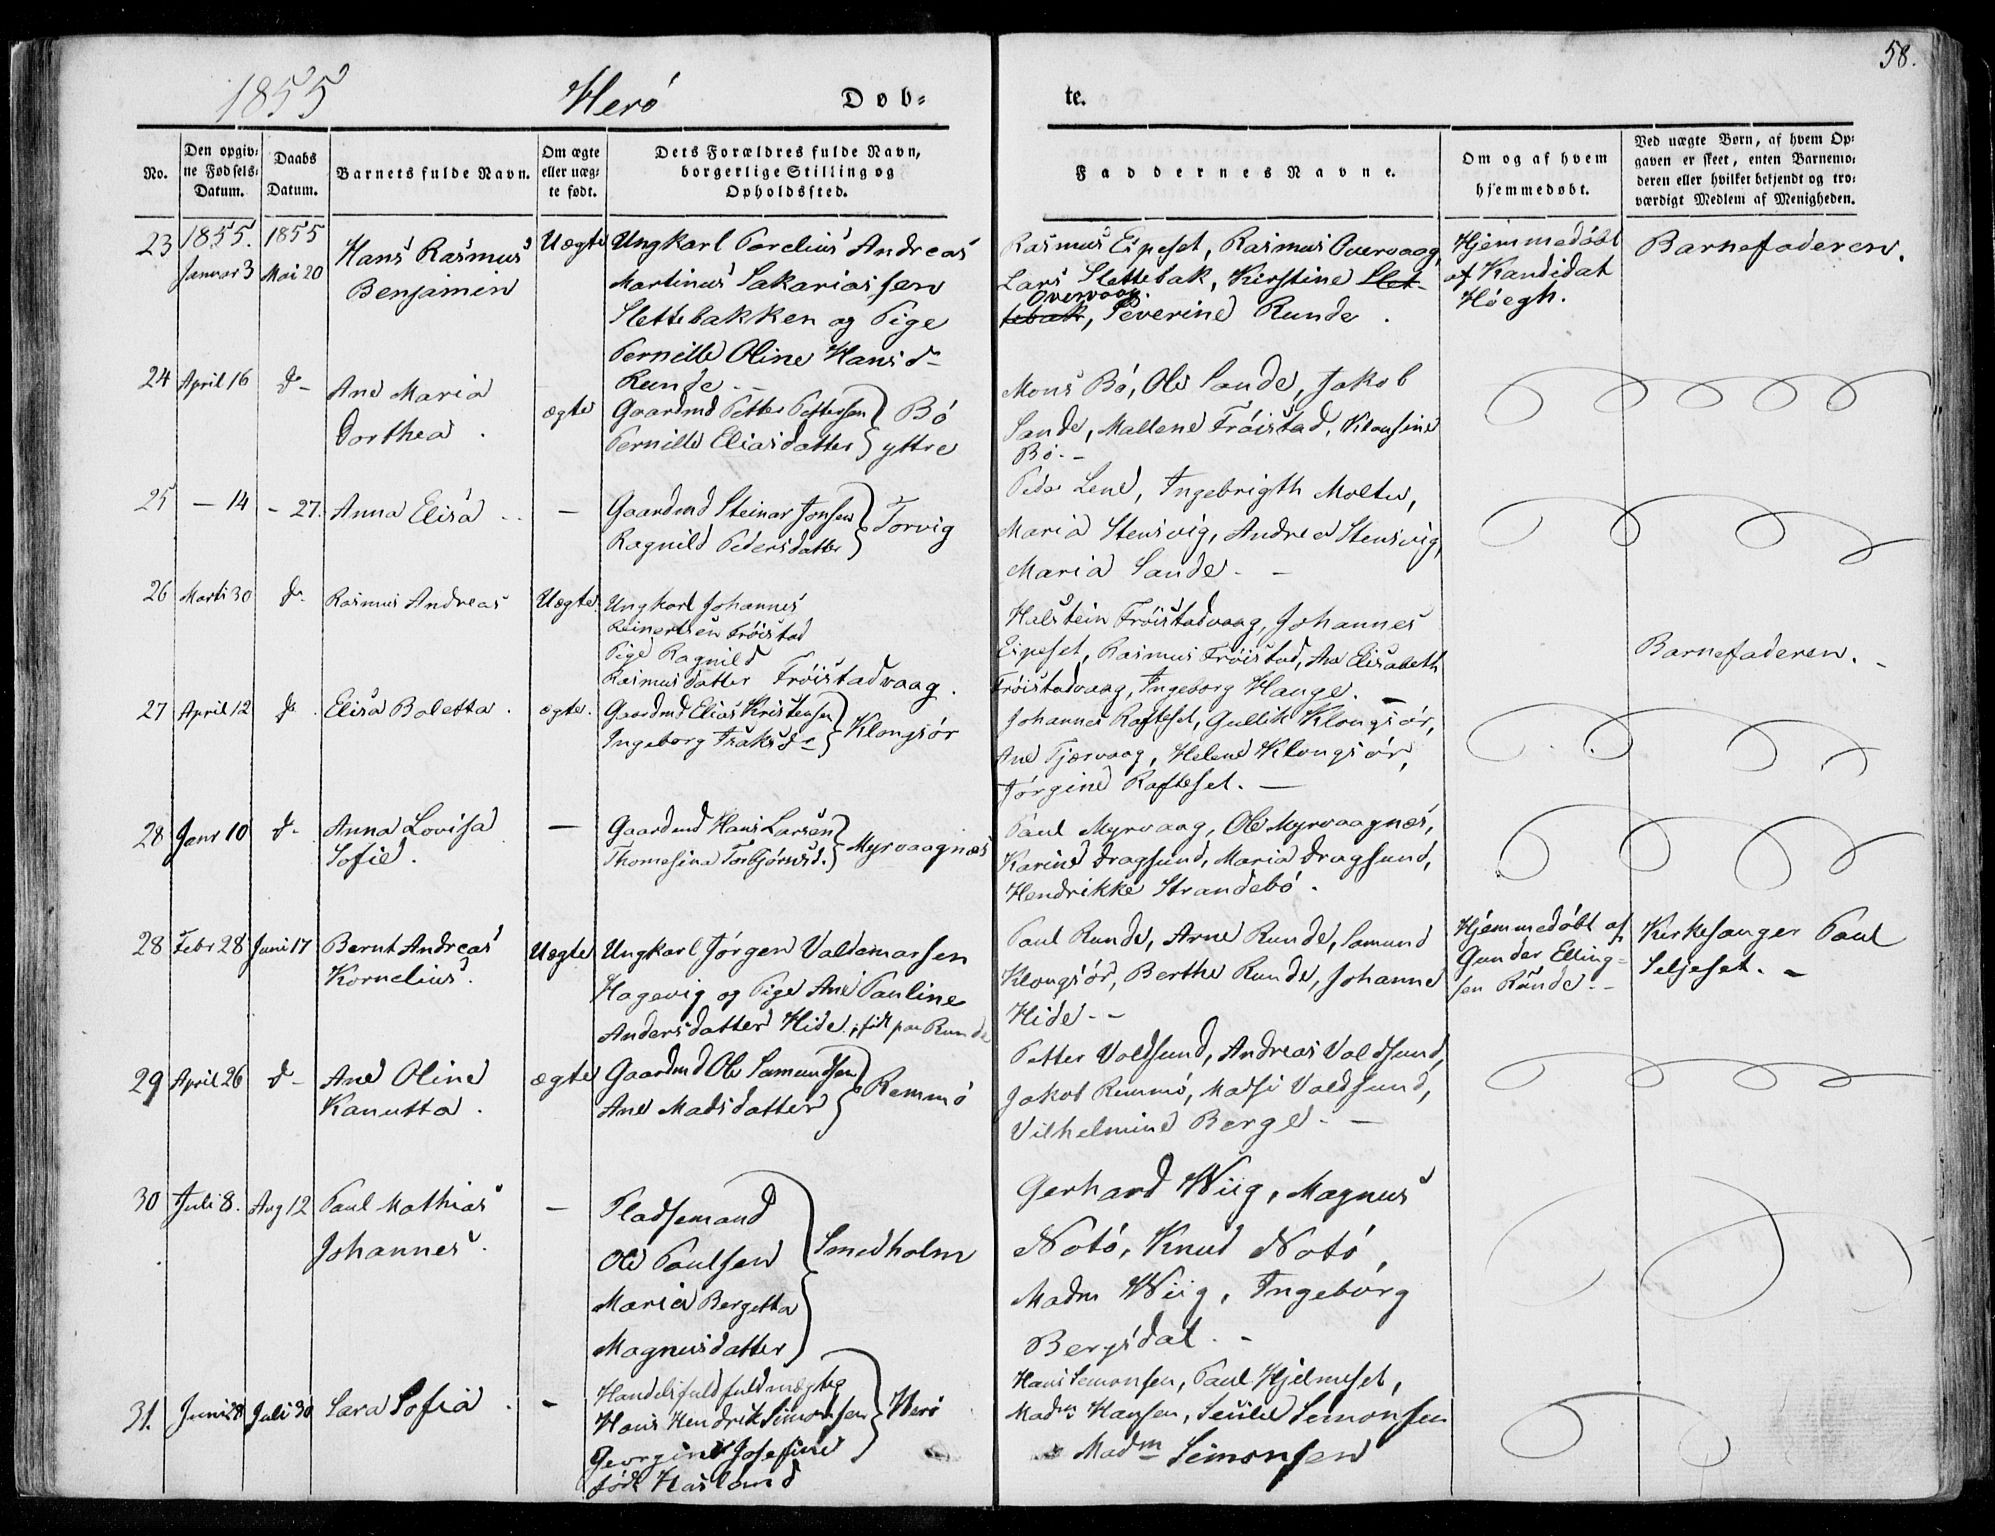 58.
1855 Herö Døb- te.
No.
Den opgiv-
ne Fødsels-
Datum.
Daabs
Datum.
Barnets fulde Navn.
Om ægte
eller uæg-
te født.
Dets Forældres fulde Navn,
borgerlige Stilling og
Opholdssted.
Faddernes Navne.
Om og af hvem
hjemmedøbt.
Ved uægte Børn, af hvem Op-
gaven er skeet, enten Barnemo-
deren eller hvilket bekjendt og tro-
værdigt Medlem af Menigheden.
23 1855. Januar 3 1855 Mai 20
Hans Rasmus
Benjamin
Uægte
Ungkarl Porelius Andreas
Martinus Sakariassen
Slettebakken og Pige
Pernille Oline Hansd-
Runde -
Rasmus Eipeset, Rasmus Overvaag
Lars Slettebak, Kirstine Slet-
Overvaag
tebak, Severine Runde.
Hjemmedöbt
af Kandidat
Höegh.
Barnefaderen.
24 April 16 d-
Ane Maria
Dorthea.
ægte
Gaardmd Petter Pettersen
Pernille Eliasdatter
Bö
yttre
Mons Bö, Ole Sande, Jakob
Sande, Mallene Fröistad, Klausine
Bö.-
25 - 14 - 27.
Anna Elisa
-
Gaardmd Steinar Jonsen
Ragnild Pedersdatter
Torvig
Peder Lene, Ingebrigth Moltu,
Maria Stensvig, Andrea Stensvig,
Maria Sande. -
26 Marti 30 d-
Rasmus Andreas
Uægte
Ungkarl Johannes
Reinertsen Fröistad
Pige Ragnild
Rasmusdatter Fröistadvaag.
Halstein Fröistadvaag, Johannes
Eipeset, Rasmus Fröistad, Ane Elisabeth
Fröistadvaag, Ingeborg Hauge. -
Barnefaderen. -
27 April 12 d-
Elisa Boletta.
ægte.
Gaardmd Elias Kristensen
Ingeborg Isaksd-
Klongsör
Johannes Rafteset, Gullik Klongsör,
Ane Tjærvaag, Helene Klongsör,
Jörgine Rafteset. -
28 Janr 10 d-
Anna Lovisa
Sofie.
-
Gaardmd Hans Larsen
Thomesina Torbjörnsd.
Myrvaagnæs
Paul Myrvaag, Ole Myrvaagnæs,
Karine Dragsund, Maria Dragsund,
Hendrikke Strandebö.
28 Febr 28 Juni 17
Bernt Andreas
Kornelius.
Uægte
Ungkarl Jörgen Valdemarsen
Hagevig og Pige Ane Pauline
Andersdatter Hide, föd paa Runde
Paul Runde, Arne Runde, Samund
Klongsör, Berthe Runde, Johanne
Hide. -
Hjemmedöbt af
Gunder Elling-
sen Runde. -
Kirkesanger Paul
Seljeset. -
29 April 26 d-
Ane Oline
Kanutta.
ægte
Gaardmd Ole Samundsen
Ane Madsdatter
Remmö
Petter Voldsund, Andreas Voldsund,
Jakob Remmö, Matsi Voldsund,
Vilhelmine Berge. -
30 Juli 8. Aug 12
Paul Mathias
Johannes.
-
Pladsemand
Ole Paulsen
Maria Bergetta
Magnusdatter
Smedholm
Gerhard Wiig, Magnus
Notö, Knud Notö,
Madm Wiig, Ingeborg
Bergsdal. -
31. Juni 28 Juli 30
Sara Sofia.
-
Handelsfuldfuldmægtig
Hans Hendrik Simonsen
Georgine Josefine
född Hasland
Herö
Hans Semonsen, Paul Hjelmeset,
Madm Hansen, Semonsen
Madm Simonsen